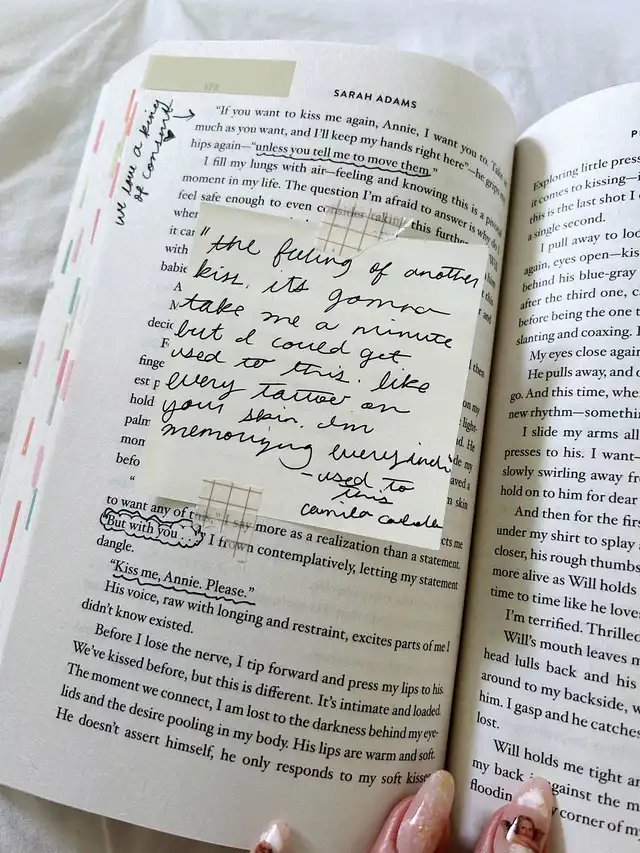 SARAH ADAMS
we love a king
of consent
"If you want to kiss me again, Annie, I want you to. Take
much as you want, and I'll keep my hands right here"—he grips my
hips again—"unless you tell me to move them."
I fill my lungs with air—feeling and knowing this is a pivotal
moment in my life. The question I'm afraid to answer is why do I
feel safe enough to even consider taking this further. Will
it
with
"the feeling of another
kiss. its gonna
take me a minute
but I could get
used to this. like
every tattoo on
your skin. Im
memorizing every inch
- used to
this
camila cabello
to want any of this." I say more as a realization than a statement.
"But with you . . ." I frown contemplatively, letting my statement
dangle.
"Kiss me, Annie. Please."
His voice, raw with longing and restraint, excites parts of me I
didn't know existed.
Before I lose the nerve, I tip forward and press my lips to his.
We've kissed before, but this is different. It's intimate and loaded.
The moment we connect, I am lost to the darkness behind my eye-
lids and the desire pooling in my body. His lips are warm and soft.
He doesn't assert himself, he only responds to my soft kisses
Exploring little pres
it comes to kissing—i
this is the last shot I
a single second.
I pull away to loo
again, eyes open—kis
behind his blue-gray
after the third one, c
before being the one t
slanting and coaxing. I
My eyes close again
He pulls away, and
go. And this time, whe
new rhythm—somethin
I slide my arms all
presses to his. I want—
slowly swirling away fr
hold on to him for dear
And then for the fir
under my shirt to splay
closer, his rough thumbs
more alive as Will holds
time to time like he love
I'm terrified. Thrilled
Will's mouth leaves m
head lulls back and his
around to my backside, w
him. I gasp and he catches
lost.
Will holds me tight a
my back against the m
floodin corner of m